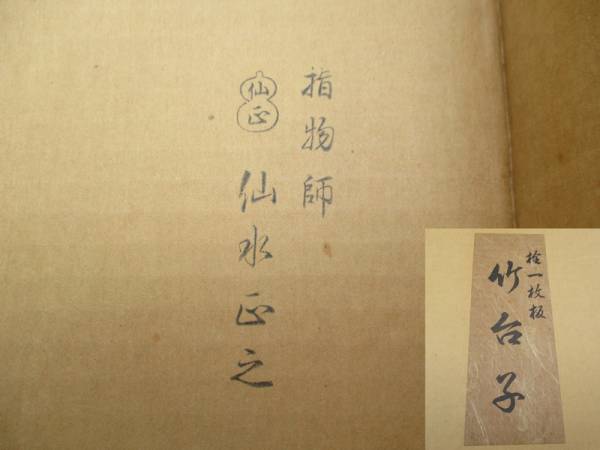 指物師
仙正
仙水正之
桧一枚板
竹台子